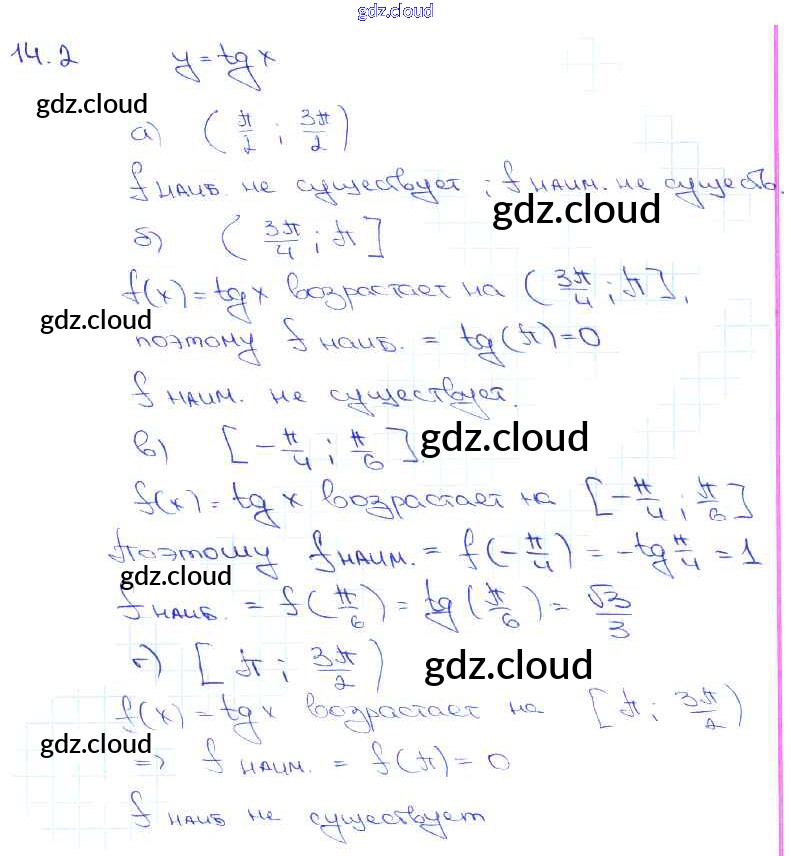 gdz.cloud
14.2 y = tg x
gdz.cloud
а) (π/2 ; 3π/2)
f наиб. не существует ; f наим. не существ.
gdz.cloud
б) (3π/4 ; π]
f(x) = tg x возрастает на (3π/4 ; π],
gdz.cloud
поэтому f наиб. = tg(π) = 0
f наим. не существует.
в) [-π/4 ; π/6]
gdz.cloud
f(x) = tg x возрастает на [-π/4 ; π/6]
Поэтому f наим. = f(-π/4) = -tg π/4 = 1
gdz.cloud
f наиб. = f(π/6) = tg(π/6) = √3/3
г) [π ; 3π/2)
gdz.cloud
f(x) = tg x возрастает на [π ; 3π/2)
gdz.cloud
=> f наим. = f(π) = 0
f наиб не существует